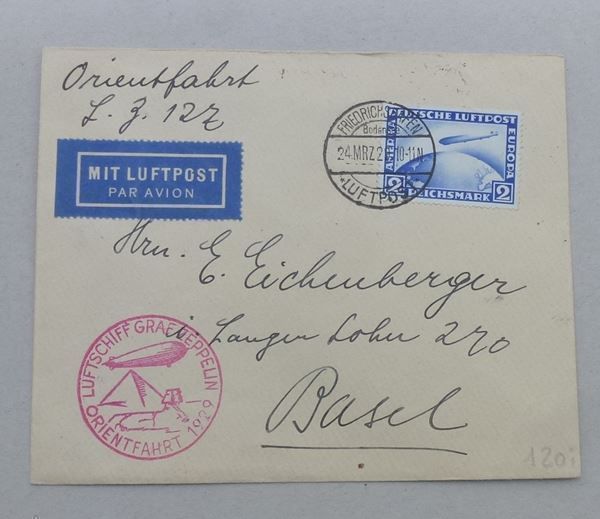 Orientfahrt
L. Z. 127
MIT LUFTPOST
PAR AVION
FRIEDRICHSHAFEN
24.MRZ 2 10-11N
*LUFTPOST*
DEUTSCHE LUFTPOST
AMERIKA
EUROPA
2 REICHSMARK 2
Hrn. E. Eichenberger
i. Langen Lohn 270
Basel
LUFTSCHIFF GRAF ZEPPELIN
ORIENTFAHRT 1929
120